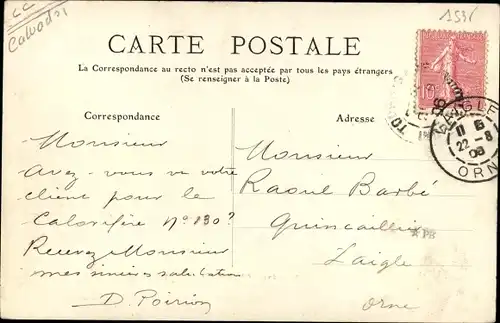 Calvados
1596
CARTE POSTALE
La Correspondance au recto n'est pas acceptée par tous les pays étrangers
(Se renseigner à la Poste)
Correspondance
Adresse
Monsieur
Avez-vous vu votre
client pour le
Calorifère N° 130?
Recevez Monsieur
mes sincères salutations
D. Poirion
Monsieur
Raoul Barbé
Quincaillier
Laigle
Orne
10
LAIGLE
11 15
22 -8
06
ORNE
★PB